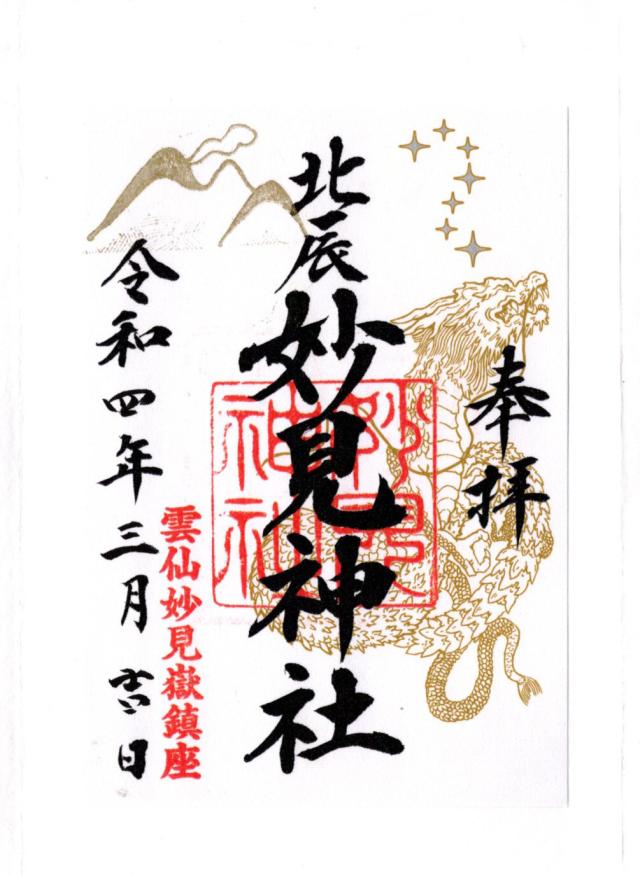 奉拝
北辰妙見神社
妙見神社
雲仙妙見嶽鎮座
令和四年三月日